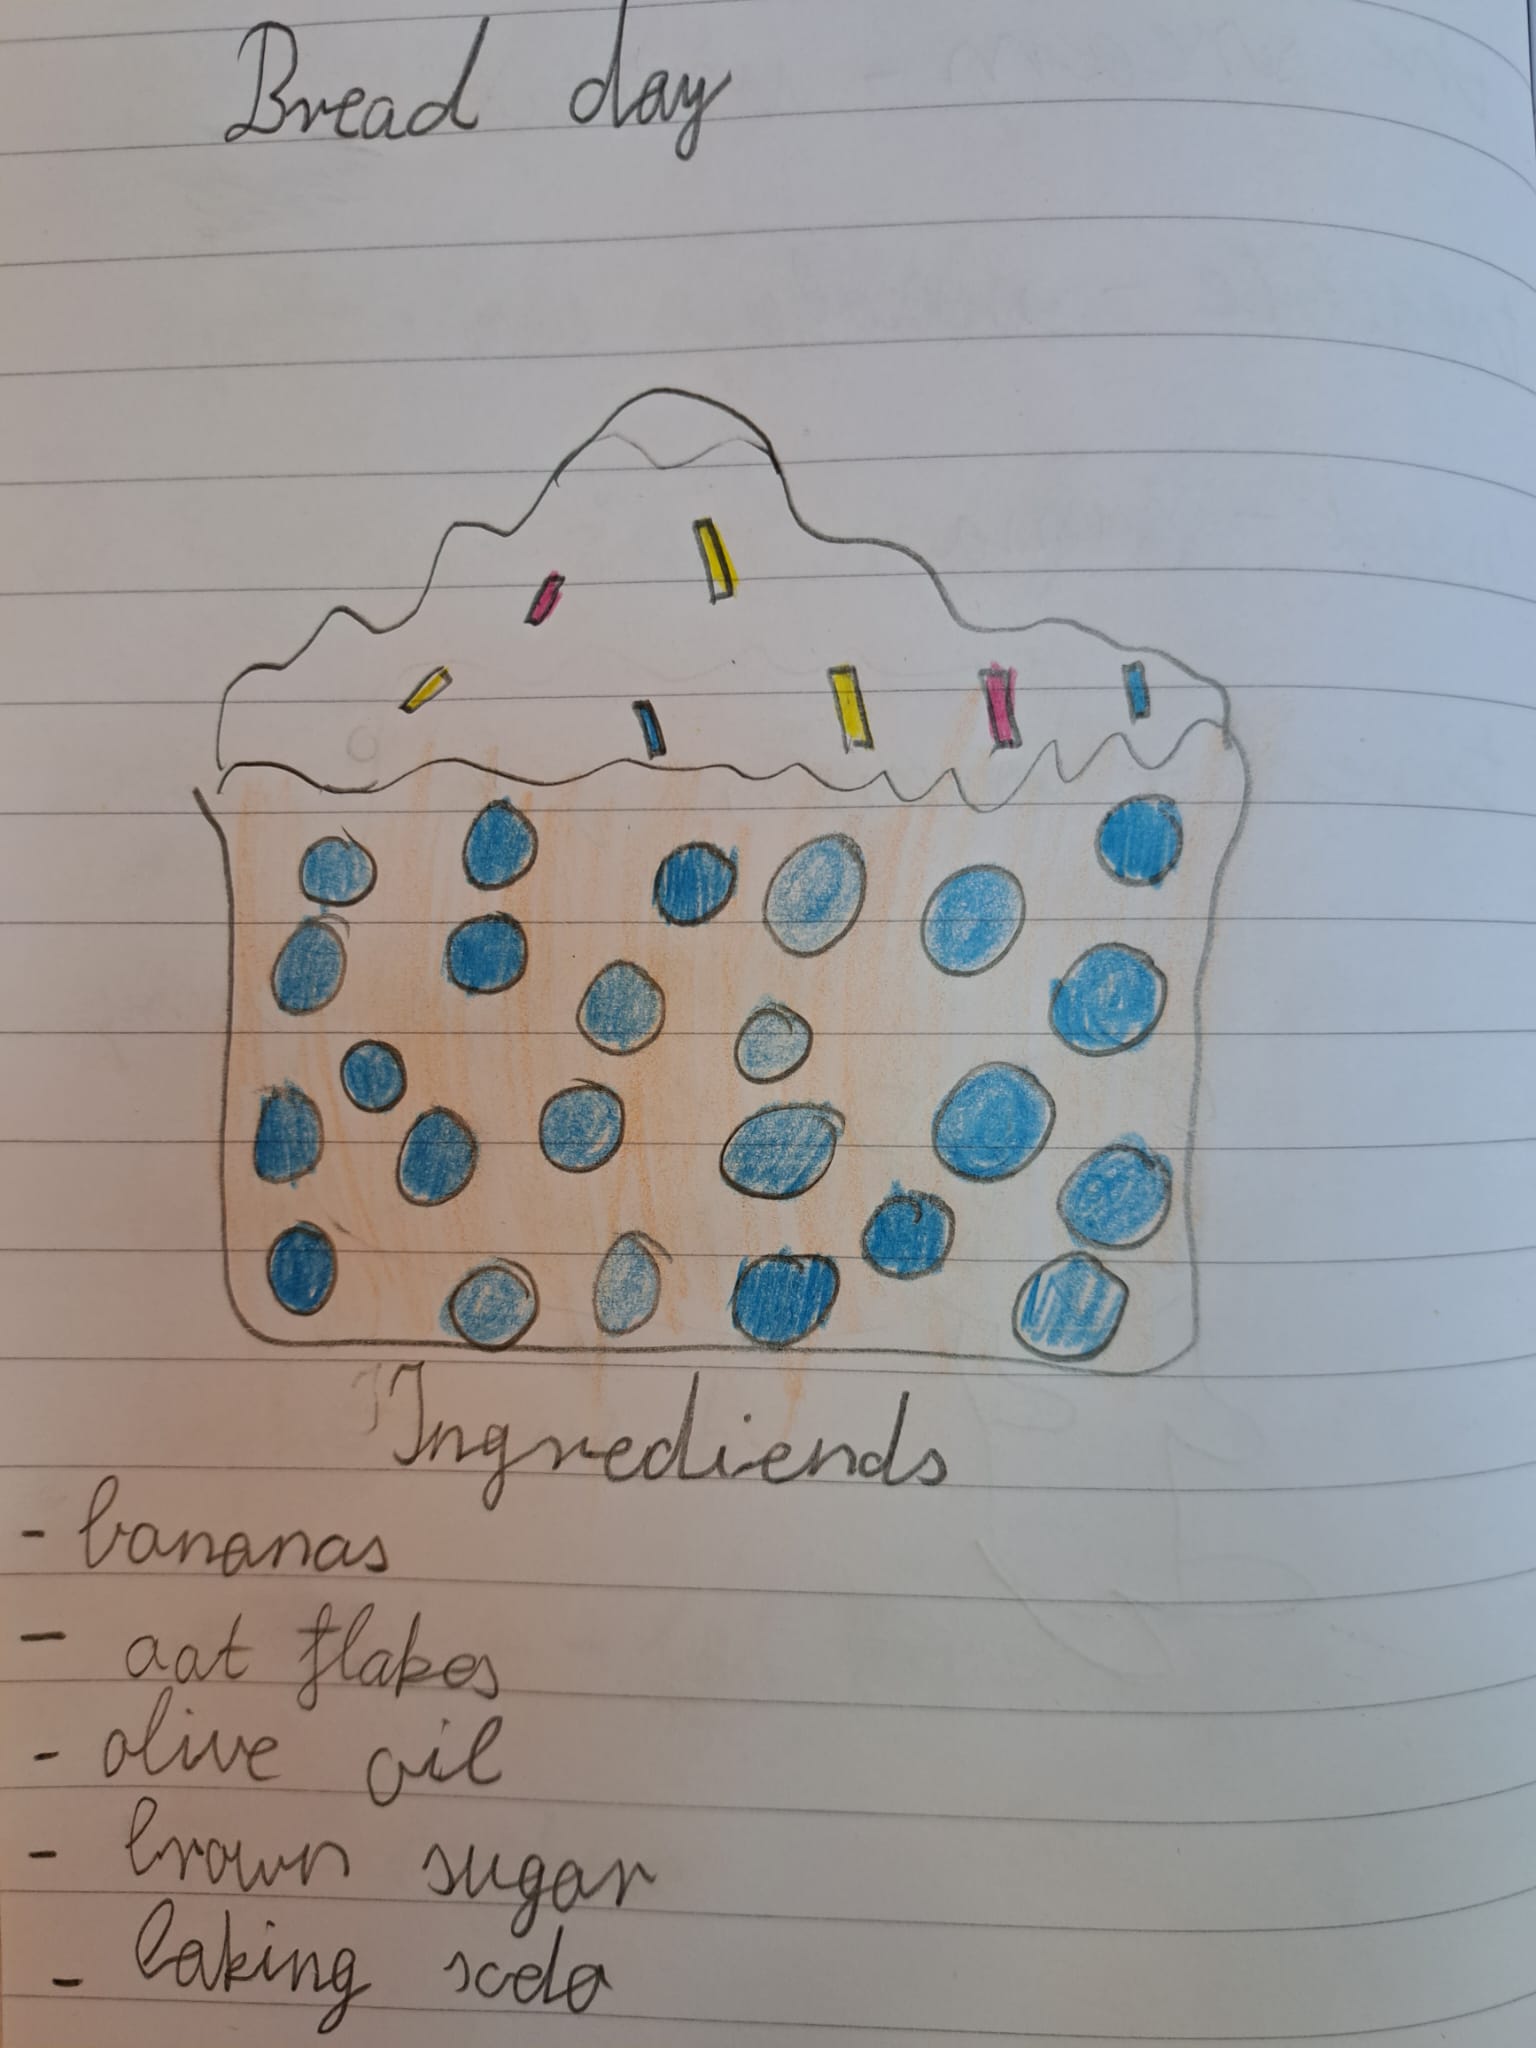 Bread day
Ingrediends
- bananas
- oat flakes
- olive oil
- brown sugar
- baking soda